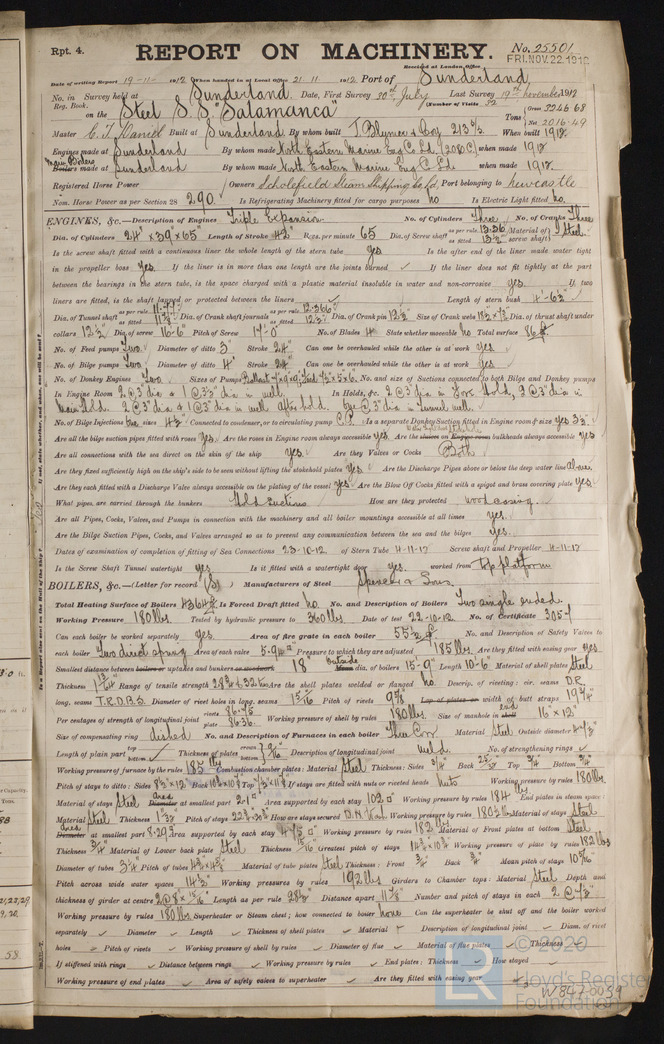 Rpt. 4.
REPORT ON MACHINERY.
No. 25501
Received at London Office
FRI. NOV. 22 1912
Date of writing Report 19-11-1912 When handed in at Local Office 21.11.1912 Port of Sunderland
No. in Survey held at Sunderland. Date, First Survey 30th July Last Survey 19th November 1912
Reg. Book. (Number of Visits 32
on the Steel S.S. "Salamanca" Tons Gross 3246.68 Net 2016.49
Master C. J. Daniel Built at Sunderland By whom built J. Blumer & Coy 213/5. When built 1912.
Engines made at Sunderland By whom made North Eastern Marine Eng Co Ld. (2080C) when made 1912
Main Boilers made at Sunderland By whom made North Eastern Marine Eng Co Ld. when made 1912.
Registered Horse Power Owners Scholefield Steam Shipping Co Ld. Port belonging to Newcastle
Nom. Horse Power as per Section 28 290. Is Refrigerating Machinery fitted for cargo purposes no Is Electric Light fitted no.
ENGINES, &c.—Description of Engines Triple Expansion No. of Cylinders Three No. of Cranks Three
Dia. of Cylinders 24" x 39" x 65" Length of Stroke 42" Revs. per minute 65 Dia. of Screw shaft as per rule 13.36 as fitted 13½" Material of screw shaft Steel
Is the screw shaft fitted with a continuous liner the whole length of the stern tube yes Is the after end of the liner made water tight
in the propeller boss yes. If the liner is in more than one length are the joints burned ✓ If the liner does not fit tightly at the part
between the bearings in the stern tube, is the space charged with a plastic material insoluble in water and non-corrosive yes. If two
liners are fitted, is the shaft lapped or protected between the liners ✓ Length of stern bush 4'-6½"
Dia. of Tunnel shaft as per rule 11.77" as fitted 11⅞" Dia. of Crank shaft journals as per rule 12.366" as fitted 12½" Dia. of Crank pin 12½" Size of Crank webs Dia. of thrust shaft under
collars 12½" Dia. of screw 16'-6" Pitch of Screw 17'-0" No. of Blades 4 State whether moveable no Total surface 86 ft
No. of Feed pumps Two Diameter of ditto 3" Stroke 24" Can one be overhauled while the other is at work yes
No. of Bilge pumps Two Diameter of ditto 4" Stroke 24" Can one be overhauled while the other is at work yes
No. of Donkey Engines Two Sizes of Pumps No. and size of Suctions connected to both Bilge and Donkey pumps
In Engine Room 2 @ 3" dia & 1 @ 3½" dia in well In Holds, &c. 2 @ 3" dia in Fore Hold, 2 @ 3" dia in
Main Hold. 2 @ 3" dia & 1 @ 3" dia in well after hold. One @ 3" dia in Tunnel well.
No. of Bilge Injections One sizes 4½ Connected to condenser, or to circulating pump C.P. Is a separate Donkey Suction fitted in Engine room & size yes 3½"
Are all the bilge suction pipes fitted with roses yes. Are the roses in Engine room always accessible yes. Are the sluices on Engine room bulkheads always accessible yes
Are all connections with the sea direct on the skin of the ship yes Are they Valves or Cocks Both
Are they fixed sufficiently high on the ship's side to be seen without lifting the stokehold plates yes Are the Discharge Pipes above or below the deep water line above
Are they each fitted with a Discharge Valve always accessible on the plating of the vessel yes Are the Blow Off Cocks fitted with a spigot and brass covering plate yes.
What pipes are carried through the bunkers Hold Suctions. How are they protected wood casing.
Are all Pipes, Cocks, Valves, and Pumps in connection with the machinery and all boiler mountings accessible at all times yes.
Are the Bilge Suction Pipes, Cocks, and Valves arranged so as to prevent any communication between the sea and the bilges yes.
Dates of examination of completion of fitting of Sea Connections 23-10-12 of Stern Tube 4-11-12 Screw shaft and Propeller 4-11-12
Is the Screw Shaft Tunnel watertight yes Is it fitted with a watertight door yes. worked from top platform
BOILERS, &c.—(Letter for record (S) Manufacturers of Steel Spencer & Sons.
Total Heating Surface of Boilers 4364 Is Forced Draft fitted no. No. and Description of Boilers Two single ended.
Working Pressure 180 lbs. Tested by hydraulic pressure to 360 lbs Date of test 22-10-12 No. of Certificate 3057
Can each boiler be worked separately yes. Area of fire grate in each boiler 55½ No. and Description of Safety Valves to
each boiler Two direct spring Area of each valve 5.94 Pressure to which they are adjusted 185 lbs. Are they fitted with easing gear yes.
Smallest distance between boilers or uptakes and bunkers or woodwork 18 Outside dia. of boilers 15'-9" Length 10'-6" Material of shell plates Steel
Thickness Range of tensile strength 28¾ & 32 tons Are the shell plates welded or flanged no. Descrip. of riveting: cir. seams D.R.
long. seams T.R.D.B.S. Diameter of rivet holes in long. seams 1 5/16 Pitch of rivets 9⅞ Lap of plates or width of butt straps 19¾"
Per centages of strength of longitudinal joint rivets 86.45 plate 86.36 Working pressure of shell by rules 180 lbs. Size of manhole in end 16" x 12"
Size of compensating ring dished No. and Description of Furnaces in each boiler Three Cor Material Steel Outside diameter
Length of plain part top bottom Thickness of plates crown bottom 9/16 Description of longitudinal joint weld. No. of strengthening rings ✓
Working pressure of furnace by the rules 185 lbs Combustion chamber plates: Material Steel Thickness: Sides ¾" Back 25/32 Top ¾ Bottom ¾"
Pitch of stays to ditto: Sides Back Top If stays are fitted with nuts or riveted heads nuts Working pressure by rules 180 lbs.
Material of stays Steel Area at smallest part Area supported by each stay 102 Working pressure by rules 184 lbs End plates in steam space
Material Steel Thickness Pitch of stays How are stays secured D.N.&W. Working pressure by rules 180½ lbs Material of stays Steel
Area at smallest part 8.29 Area supported by each stay 475 Working pressure by rules 182 lbs Material of Front plates at bottom Steel
Thickness ¾" Material of Lower back plate Steel Thickness Greatest pitch of stays Working pressure of plate by rules 182 lbs
Diameter of tubes 3¼" Pitch of tubes Material of tube plates Steel Thickness: Front Back Mean pitch of stays
Pitch across wide water spaces 14½" Working pressures by rules 192 lbs Girders to Chamber tops: Material Steel Depth and
thickness of girder at centre Length as per rule 28½" Distance apart Number and pitch of stays in each 2 @
Working pressure by rules 180 lbs Superheater or Steam chest; how connected to boiler none Can the superheater be shut off and the boiler worked
separately ✓ Diameter ✓ Length ✓ Thickness of shell plates ✓ Material ✓ Description of longitudinal joint ✓ Diam. of rivet
holes ✓ Pitch of rivets ✓ Working pressure of shell by rules ✓ Diameter of flue ✓ Material of flue plates ✓ Thickness ✓
If stiffened with rings ✓ Distance between rings ✓ Working pressure by rules ✓ End plates: Thickness ✓ How stayed ✓
Working pressure of end plates ✓ Area of safety valves to superheater ✓ Are they fitted with easing gear ✓
© 2020
Lloyd's Register
Foundation
W847-0039